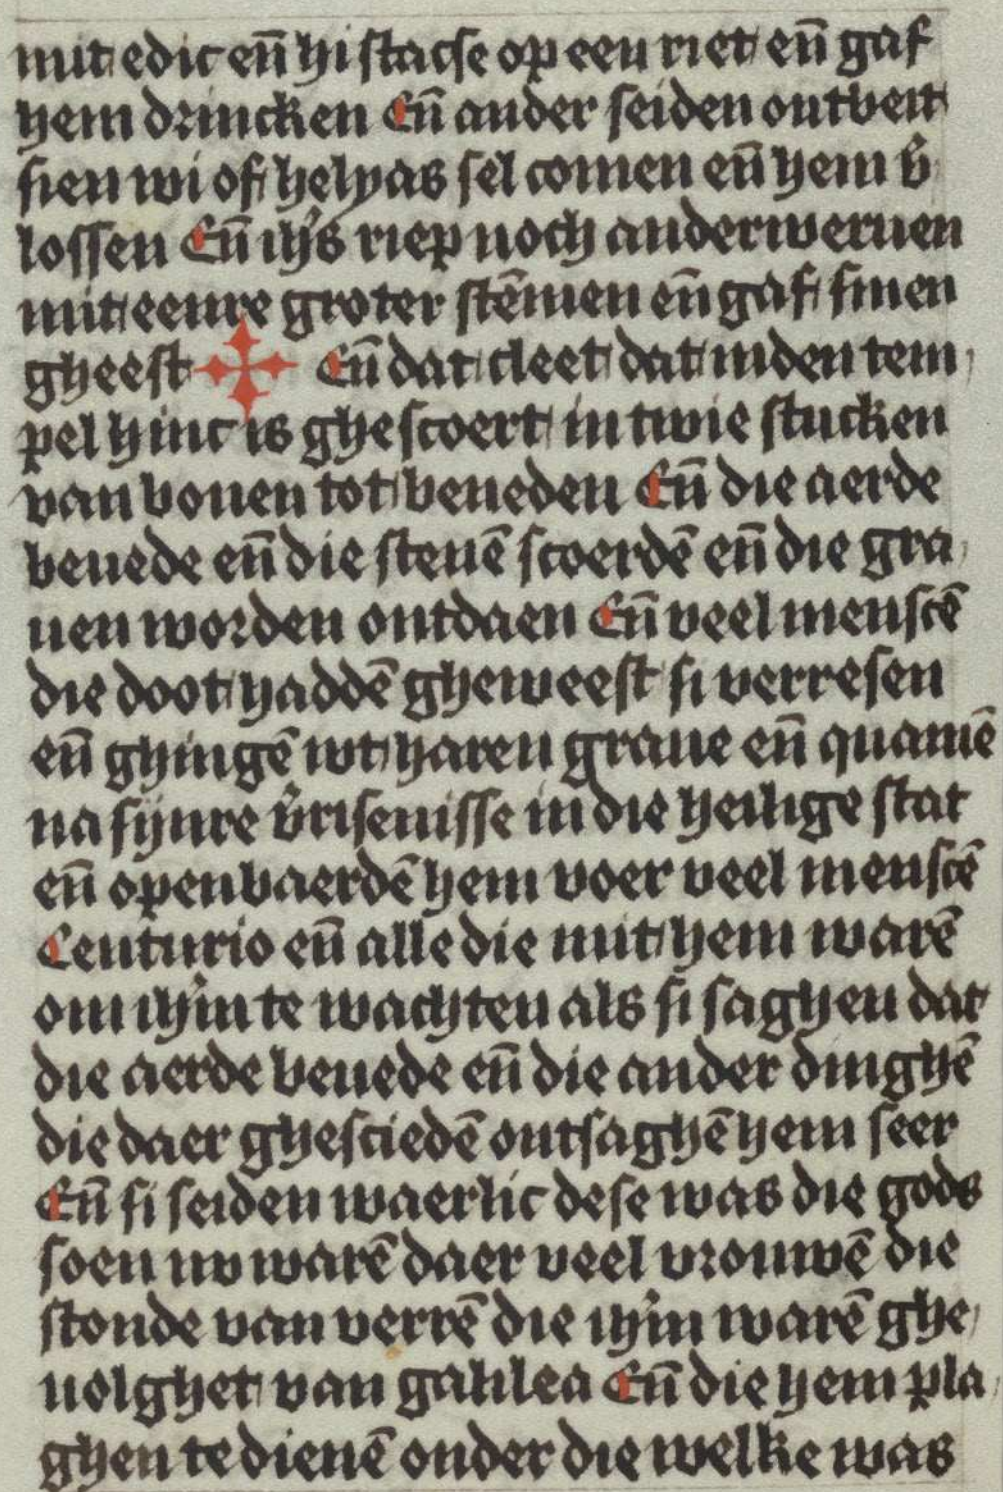 mit edic en̄ hi stacse op een riet en̄ gaf
hem drincken En̄ ander seiden ontbeit
sien wi of helyas sel comen en̄ hem v̉
lossen En̄ ih̉s riep noch anderwernen
mit eenre groter stēmen en̄ gaf sinen
gheest En̄ dat cleet dat in den tem,
pel hinc is ghescoert in twie stucken
van bouen tot beneden En̄ die aerde
beuede en̄ die stenē scoerdē en̄ die gra,
uen worden ontdaen En̄ veel menscē
die doot haddē gheweest si verresen
en̄ ghingē wt haren graue en̄ quamē
na sijnre v̉risenisse in die heilige stat
en̄ openbaerdē hem voer veel menscē
Centurio en̄ alle die mit hem warē
om ih̉m te wachten als si saghen dat
die aerde beuede en̄ die ander dinghē
die daer ghesciedē ontsaghē hem seer
En̄ si seiden waerlic dese was die gods
soen nv warē daer veel vrouwē die
stonde van verrē die ih̉m warē ghe,
uolghet van galilea En̄ die hem pla,
ghen te dienē onder die welke was